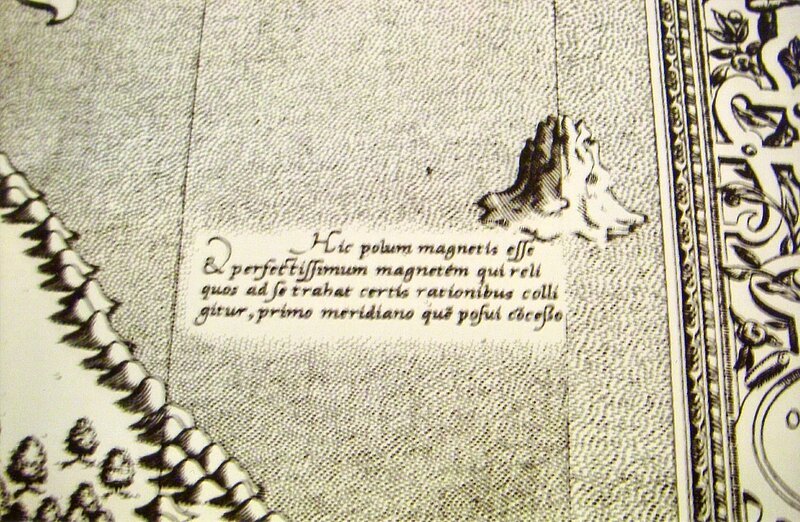 Hic polum magnetis esse
& perfectissimum magnetem qui reli
quos ad se trahat certis rationibus colli
gitur, primo meridiano quē posui cōcesso